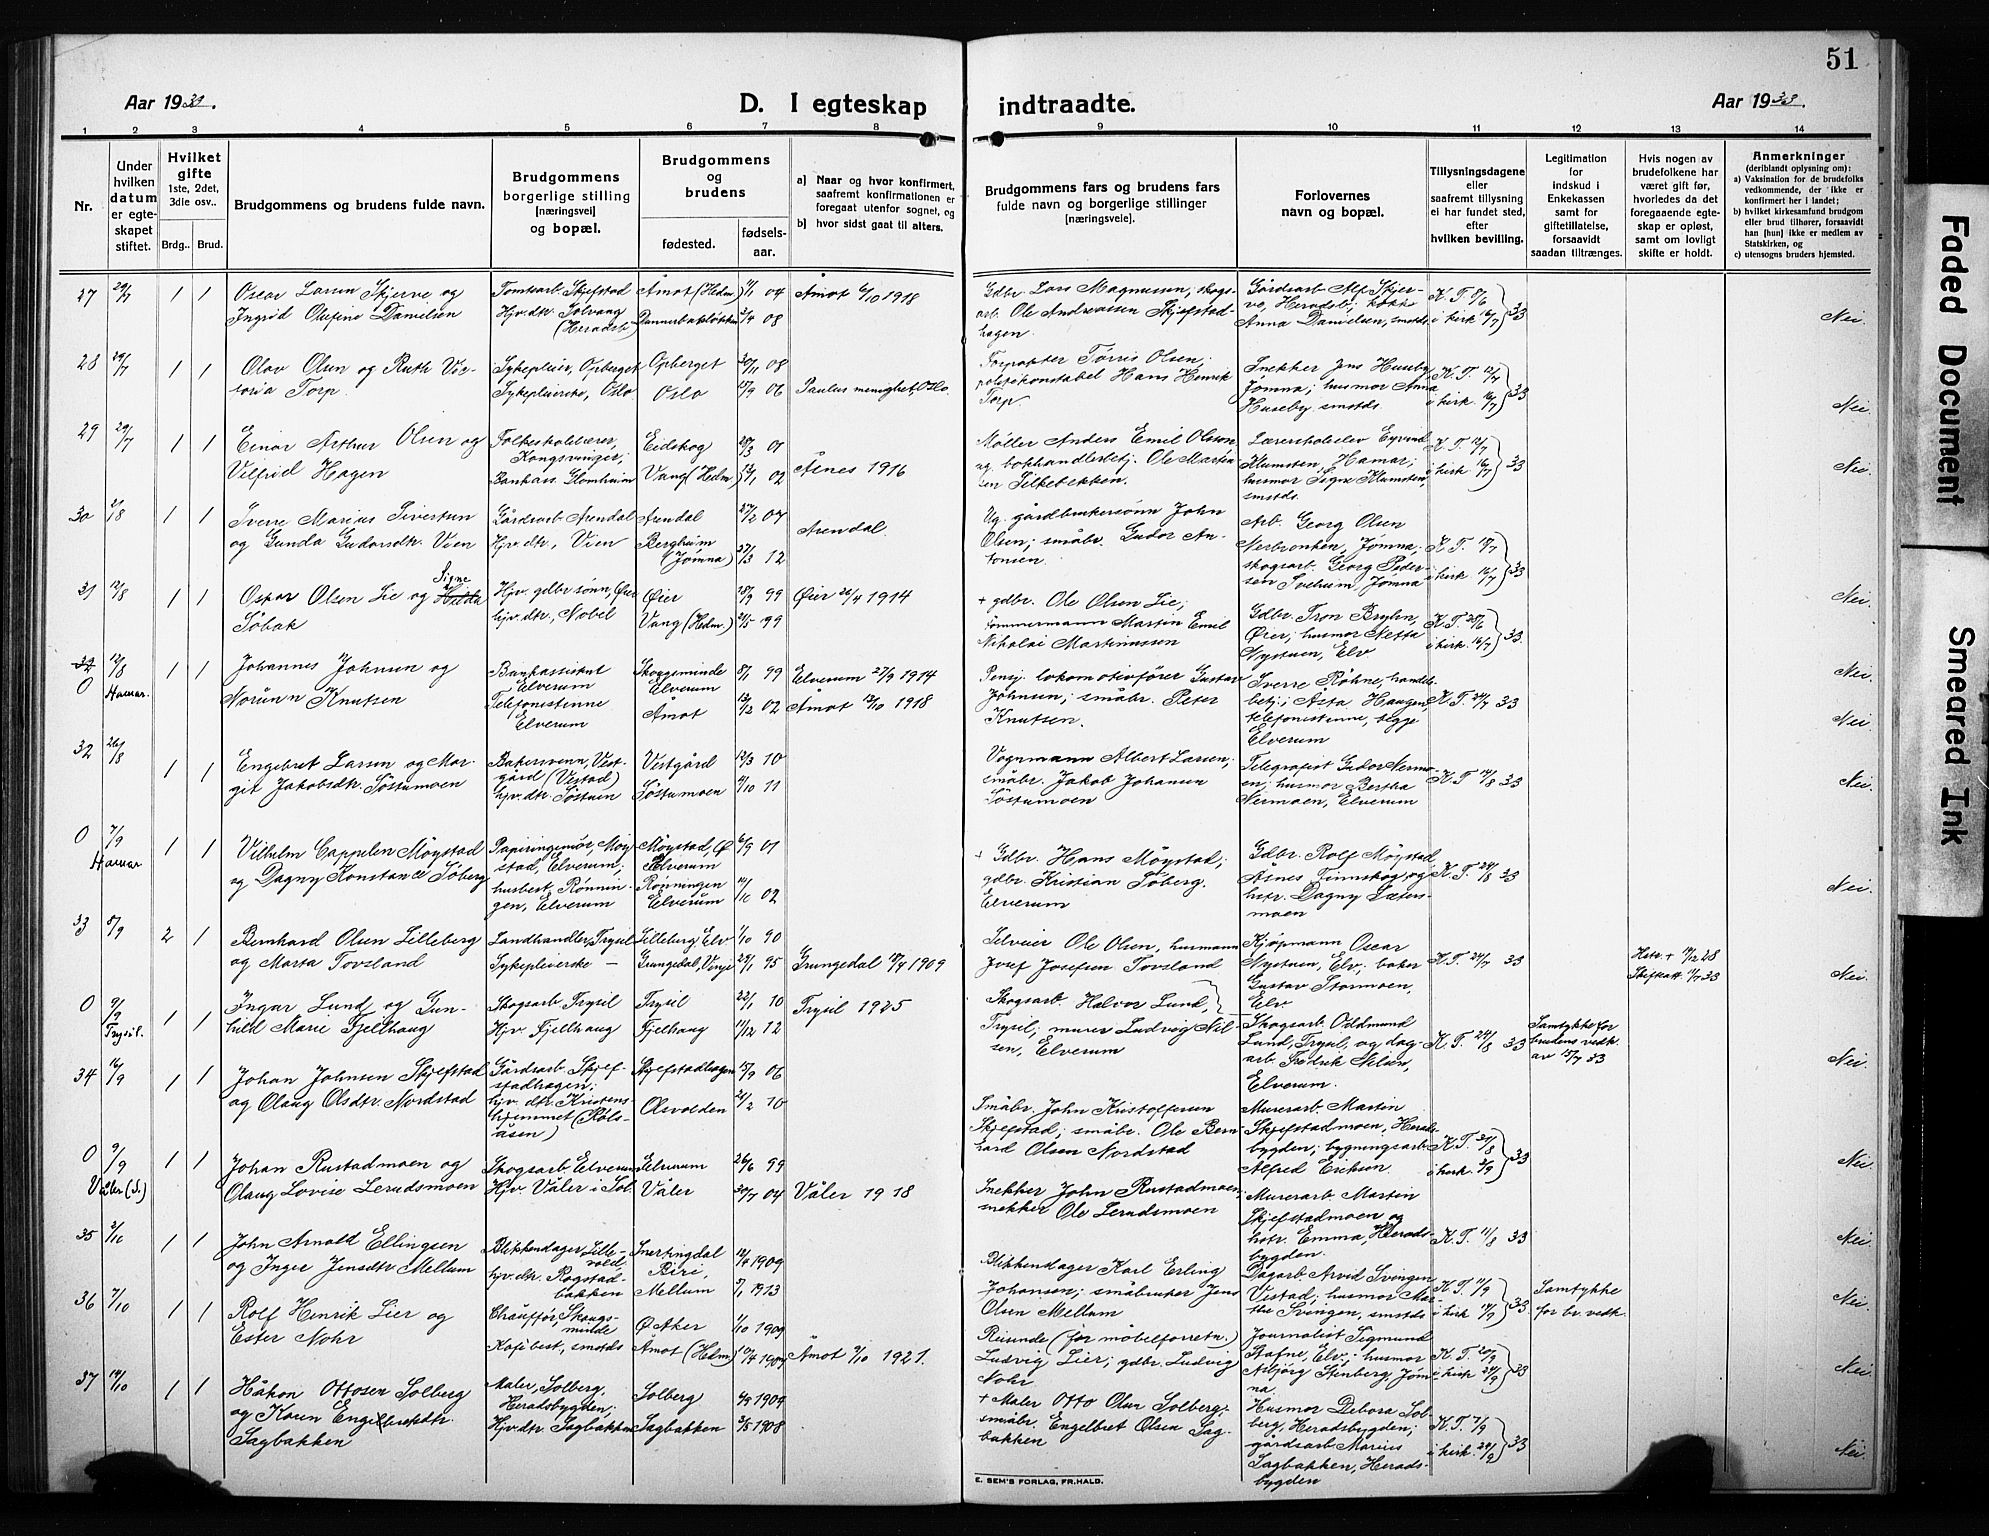 51
Aar 1933.
D. I egteskap
indtraadte.
Aar 1933.
1 2 3 4 5 6 7 8 9 10 11 12 13 14
Nr.
Under hvilken datum er egteskapet stiftet.
Hvilket gifte
1ste, 2det, 3die osv..
Brdg.. Brud.
Brudgommens og brudens fulde navn.
Brudgommens borgerlige stilling [næringsvei] og bopæl.
Brudgommens og brudens
fødested.
fødselsaar.
a) Naar og hvor konfirmert, saafremt konfirmationen er foregaat utenfor sognet, og
b) hvor sidst gaat til alters.
Brudgommens fars og brudens fars
fulde navn og borgerlige stillinger
[næringsveie].
Forlovernes
navn og bopæl.
Tillysningsdagene
eller
saafremt tillysning
ei har fundet sted,
efter
hvilken bevilling.
Legitimation
for
indskud i
Enkekassen
samt for
giftetillatelse,
forsaavidt
saadan tiltrænges.
Hvis nogen av
brudefolkene har
været gift før,
hvorledes da det
foregaaende egteskap er opløst,
samt om lovligt
skifte er holdt.
Anmerkninger
(deriblandt oplysning om):
a) Vaksination for de brudefolks vedkommende, der ikke er konfirmert her i landet;
b) hvilket kirkesamfund brudgom eller brud tilhører, forsaavidt han [hun] ikke er medlem av Statskirken, og
c) utensogns bruders hjemsted.
27 29/7 1 1 Oscar Larsen Skjerve og
Ingrid Olufine Danielsen
Tomtearb. Skjefstad
Hjv. dtr. Solvang
(Heradsb.)
Åmot (Hedm)
04
08
Åmot 1918
Gdbr. Lars Magnussen, skogsarb. Ole Andreassen Skjefstadhagen.
Gårdsarb. Alf Skjerve, Heradsb.; kokke
Anna Danielsen, smstds
Nei.
28 29/7 1 1 Olav Olsen og Ruth Victoria Torp.
Sykepleier, Opberget
Sykepleierske, Oslo
Opberget
Oslo
08
06
Paulus menighet, Oslo.
Forpakter Tørris Olsen;
politikonstabel Hans Henrik
Torp.
Snekker Jens Huseby
Jømna; husmor Anna
Huseby smstds.
Nei
29 29/7 1 1 Einar Arthur Olsen og
Vilfrid Hagen
Folkeskolelærer,
Kongsvinger;
Bankass. Glomheim
Eidskog
Vang (Hedm.)
01
02
Åsnes 1916
Møller Anders Emil Olsen
og bokhandlerbetj. Ole Martinsen Silkebekken.
Lærerskoleelev Eyvind
Klumsten, Hamar;
husmor Signe Klumsten,
smstds.
Nei.
30 1 1 Sverre Marius Sivertsen
og Gunda Gudorsdtr. Vien
Gårdsarb. Arendal
Hjv. dtr., Vien
Arendal
Bergheim
(Jømna)
27/2 04
27/3 12
Arendal.
Ug. gårdbrukersønn John
Olsen; småbr. Gudor Antonsen
Arb. Georg Olsen
Nerbronken, Jømna;
skogsarb. Georg Pedersen Sveheim, Jømna
Nei.
31 12/8 1 1 Oskar Olsen Lie og Signe
Søbak
Hjv. gdbr. sønn, Øier
hjv. dtr., Nobel
Øier
Vang (Hedm.)
18/9 99
99
Øier 26/4 1914
+ gdbr. Ole Olsen Lie;
tømmermann Martin Emil
Nikolai Martinussen
Gdbr. Tron Bryhn,
Øier; husmor Netta
Nystuen, Elv
32
0 12/8 Hamar. 1 1 Johannes Johnsen og
Norunn Knutsen
Bankassistent
Elverum
Telefonistinne
Elverum
Skogsminde
Elverum
Åmot
8/1 99
13/2 02
Elverum 27/9 1914
Åmot 13/10 1918
Pensj. lokomotivfører Gustav
Johnsen; småbr. Peter
Knutsen.
Sverre Røhne, handelsbetj.; Åsta Haugen,
telefonistinne, begge
Elverum
K. T. 24/7 33
Nei.
32 26/8 1 1 Engebret Larsen og Margit Jakobsdtr. Søstumoen
Bakersvenn, Vestgård (Vestad)
hjv. dtr. Søstuen
Vestgård
Søstumoen
12/3 10
11
Vognmann Albert Larsen;
småbr. Jakob Johansen
Søstumoen
Telegrafist Gudor Nermoen; husmor Bertha
Nermoen, Elverum
K. T. 14/8 33
Nei.
0 7/9 Hamar 1 1 Vilhelm Cappelen Møystad
og Dagny Konstance Søberg
Papiringeniør, Møystad, Elverum;
husbest. Rønningen, Elverum
Møystad, Ø
Elverum
Rønningen
Elverum
6/9 01
02
+ Gdbr. Hans Møystad;
gdbr. Kristian Søberg.
Elverum
Gdbr. Rolf Møystad,
Åsnes Finnskog, og
hstr. Dagny Sætersmoen
K. T. 24/8 33
Nei.
33 8/9 2 1 Bernhard Olsen Lilleberg
og Marta Tovsland
Landhandler, Trysil
Sykepleierske —
Lilleberg, Elv
Grungedal, Vinje
1/10 90
95
Grungedal 1909
Selveier Ole Olsen, husmann
Josef Josefsen Tovsland
Kjøpmann Oscar
Nystuen, Elv; baker
Gustav Stormoen,
Elv.
K. T. 24/7 33
Hstr. + 28
Skifteatt. 33
Nei.
0 9/9 Trysil. 1 1 Ingar Lund og Gunhild Marie Fjelthaug
Skogsarb. Trysil
Hjv. Fjelhaug
Trysil
Fjelhaug
22/1 10
11/12 12
Trysil 1925
Skogsarb. Halvor Lund,
Trysil; murer Ludvig Nilsen, Elverum
Skogsarb. Oddmund
Lund, Trysil, og dagarb. Fredrik Nilsen,
Elverum.
K. T. 24/8 33
Samtykke for
brudens vedk.
av 15/7 33
Nei.
34 16/9 1 1 Johan Johnsen Skjefstad
og Olaug Olsdtr. Nordstad
Gårdsarb. Skjefstadhagen;
hjv. dtr. Kristenshjemmet (Rølsåsen)
Skjefstadhagen
Olsvolden
06
10
Småbr. John Kristoffersen
Skjefstad; småbr. Ole Bernhard Olsen Nordstad
Murerarb. Martin
Skjefstadmoen, Heradsbygden; bygningsarb.
Alfred Eriksen
Nei.
0 9/9 Våler (S.) 1 1 Johan Rustadmoen og
Olaug Lovise Lerudsmoen
Skogsarb. Elverum
Hjv. Våler i Sol.
Elverum
Våler
26/6 99
04
Våler 1918
Snekker John Rustadmoen,
snekker Ole Lerudsmoen
Murerarb. Martin
Skjefstadmoen og
hstr. Emma, Heradsbygden.
K. T. 11/8 33
Nei.
35 1 1 John Arnold Ellingsen
og Inger Jensdtr. Mellum
Blikkenslager, Lillevold,
hjv. dtr. Rogstadbakken
Snertingdal
Biri,
Mellum
1909
1913
Blikkenslager Karl Erling
Johansen; småbruker Jens
Olsen Mellum
Dagarb. Arvid Svingen
Vestad; husmor Marthe Svingen, smstds
Samtykke
for br. vedk.
Nei.
36 7/10 1 1 Rolf Henrik Lier og
Ester Nohr
Chauffør, Skogsminde
Kafébest., smstds
Ø. Aker
Åmot (Hedm)
1909
Åmot 9/10 1921.
Reisende (for møbelforretn.)
Ludvig Lier; gdbr. Ludvig
Nohr
Journalist Sigmund
Stafne, Elv.; husmor
Asbjørg Stenberg, Jømna.
Nei.
37 14/10 1 1 Håkon Ottosen Solberg
og Karen Engebretsdtr.
Sagbakken
Maler, Solberg,
Heradsbygden;
Hjv. dtr. Sagbakken
Solberg
Sagbakken
1904
1908
+ Maler Otto Olsen Solberg;
småbr. Engelbret Olsen Sagbakken
Husmor Debora Solberg, Heradsbygden;
gårdsarb. Marius
Sagbakken, Heradsbygden
Nei.
E. SEM'S FORLAG, FR.HALD.
Faded Document
Smeared Ink